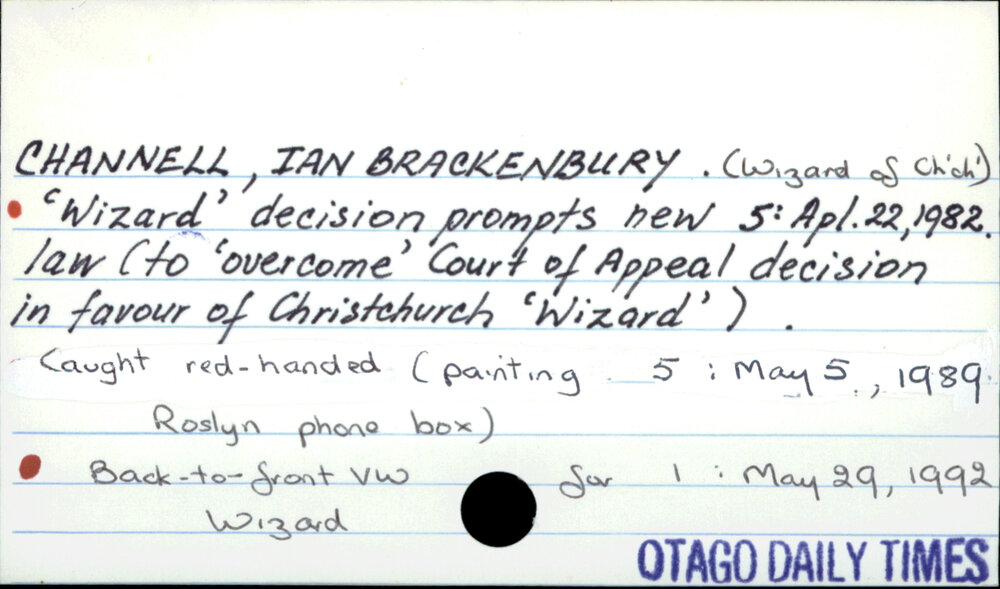 CHANNELL, IAN BRACKENBURY. (Wizard of Ch'ch')
'Wizard' decision prompts new 5: Apl. 22, 1982.
law (to 'overcome' Court of Appeal decision
in favour of Christchurch 'Wizard').
Caught red-handed (painting 5 : May 5, 1989.
Roslyn phone box)
Back-to-front VW for 1 : May 29, 1992
Wizard
OTAGO DAILY TIMES